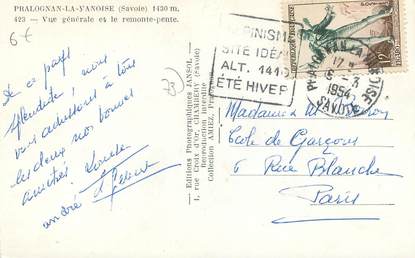 PRALOGNAN-LA-VANOISE (Savoie) 1430 m.
423 — Vue générale et le remonte-pente.
6€
De ce pays
splendide, nous
vous adressons à tous
les deux nos bonnes
amitiés.
73
Editions Photographiques JANSOL,
1, rue Croix d'Or, CHAMBÉRY (Savoie)
Reproduction interdite
Collection AMIEZ, Pralognan
ALPINISME
SITE IDÉAL
ALT. 1410
ÉTÉ HIVER
PRALOGNAN-LA-VANOISE
17
6-3
1954
SAVOIE
Madame et M.
Ecole de Garçons
6 Rue Blanche
Paris